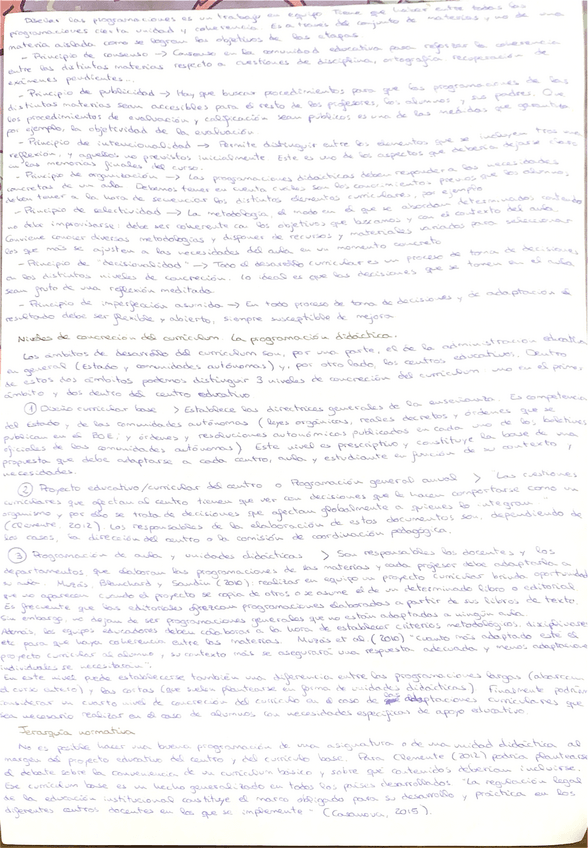 las programaciones es un trabajo en equipo Tiene que haber entre todas las
programaciones cierta unidad y coherencia. Es a través del conjunto de materias, y no de una
materia aislada como se logran los objetivos de las etapas
- Principio de consenso → Consenso en la comunidad educativa para reforzar la coherencia
entre las distintas materias respecto a cuestiones de disciplina, ortografía recuperación de
exámenes pendientes...
- Principio de publicidad → Hay que buscar procedimientos para que las programaciones de las
distintas materias sean accesibles para el resto de los profesores, los alumnos y sus padres. Que
los procedimientos de evaluación y calificación sean públicos es una de las medidas que garantiza
por ejemplo, la objetividad de la evaluación
- Principio de intencionalidad → Permite distinguir entre los elementos que se incluyen tras una
reflexión, y aquellos no previstos inicialmente Este es uno de los aspectos que debería dejarse claro
en las memorias finales del curso.
- Principio de → Las programaciones didácticas deben responder a las necesidades
concretas de un aula Debemos tener en cuenta cuáles son los conocimientos previos que los alumnos
deben tener a la hora de secuenciar los distintos elementos curriculares, por ejemplo
- Principio de selectividad → La metodología, el modo en el que se abordan determinados contenidos
no debe improvisarse: debe ser coherente con los objetivos que buscamos y con el contexto del aula.
Conviene conocer diversas metodologías y disponer de recursos y materiales variados para seleccionar
los que más se ajusten a las necesidades del aula en un momento concreto
- Principio de "decisionalidad" → Todo el desarrollo curricular es un proceso de toma de decisiones
a los distintos niveles de concreción. Lo ideal es que las decisiones que se tomen en el aula
sean fruto de una reflexión meditada
- Principio de imperfección asumida → En todo proceso de toma de decisiones y de adaptación el
resultado debe ser flexible y abierto, siempre susceptible de mejora
Niveles de concreción del currículum La programación didáctica.
Los ámbitos de desarrollo del currículum son, por una parte, el de la administración educativa
en general (estado y comunidades autónomas) y, por otro lado, los centros educativos. Dentro
de estos dos ámbitos podemos distinguir 3 niveles de concreción del currículum uno en el primer
ámbito y dos dentro del centro educativo
① Diseño curricular base > Establece las directrices generales de la enseñanza. Es competencia
del Estado, y de las comunidades autónomas (leyes orgánicas, reales decretos y órdenes que se
publican en el BOE; y órdenes y resoluciones autonómicas publicadas en cada uno de los boletines
oficiales de las comunidades autónomas) Este nivel es prescriptivo y constituye la base de una
propuesta que debe adaptarse a cada centro, aula y estudiante en función de su contexto y
necesidades.
② Proyecto educativo/curricular del centro o Programación general anual > Las cuestiones
curriculares que afectan al centro tienen que ver con decisiones que le hacen comportarse como un
organismo y por ello se trata de decisiones que afectan globalmente a quienes lo integran"
(Clemente, 2012). Los responsables de la elaboración de estos documentos son, dependiendo de
los casos, la dirección del centro o la comisión de coordinación pedagógica.
③ Programación de aula y unidades didácticas > Son responsables los docentes y los
departamentos que elaboran las programaciones de las materias y cada profesor debe adaptarla a
su aula Muzás, Blanchard y Sandín (2010): realizar en equipo un proyecto curricular brinda oportunidad
que no aparecen cuando el proyecto se copia de otros o se asume el de un determinado libro o editorial
Es frecuente que las editoriales ofrezcan programaciones elaboradas a partir de sus libros de texto
Sin embargo, no dejan de ser programaciones generales que no están adaptadas a ningún aula
Además, los equipos educadores deben colaborar a la hora de establecer criterios metodológicos, disciplinares
etc para que haya coherencia entre las materias Muzás et al. (2010) "Cuanto más adaptado esté el
proyecto curricular al alumno y su contexto más se asegurará una respuesta adecuada y menos adaptaciones
individuales se necesitarán".
En este nivel puede establecerse también una diferencia entre las programaciones largas (abarcan
el curso entero) y las cortas (que suelen plantearse en forma de unidades didácticas). Finalmente podría
considerar un cuarto nivel de concreción del currículo en el caso de las adaptaciones curriculares que
sea necesario realizar en el caso de alumnos con necesidades específicas de apoyo educativo.
Jerarquía normativa
No es posible hacer una buena programación de una asignatura o de una unidad didáctica al
margen del proyecto educativo del centro y del currículo base. Para Clemente (2012) podría plantearse
el debate sobre la conveniencia de un currículum básico y sobre qué contenidos deberían incluirse.
Ese currículum base es un hecho generalizado en todos los países desarrollados "La regulación legal
de la educación institucional constituye el marco obligado para su desarrollo y práctica en los
diferentes centros docentes en los que se implemente" (Casanova, 2015).